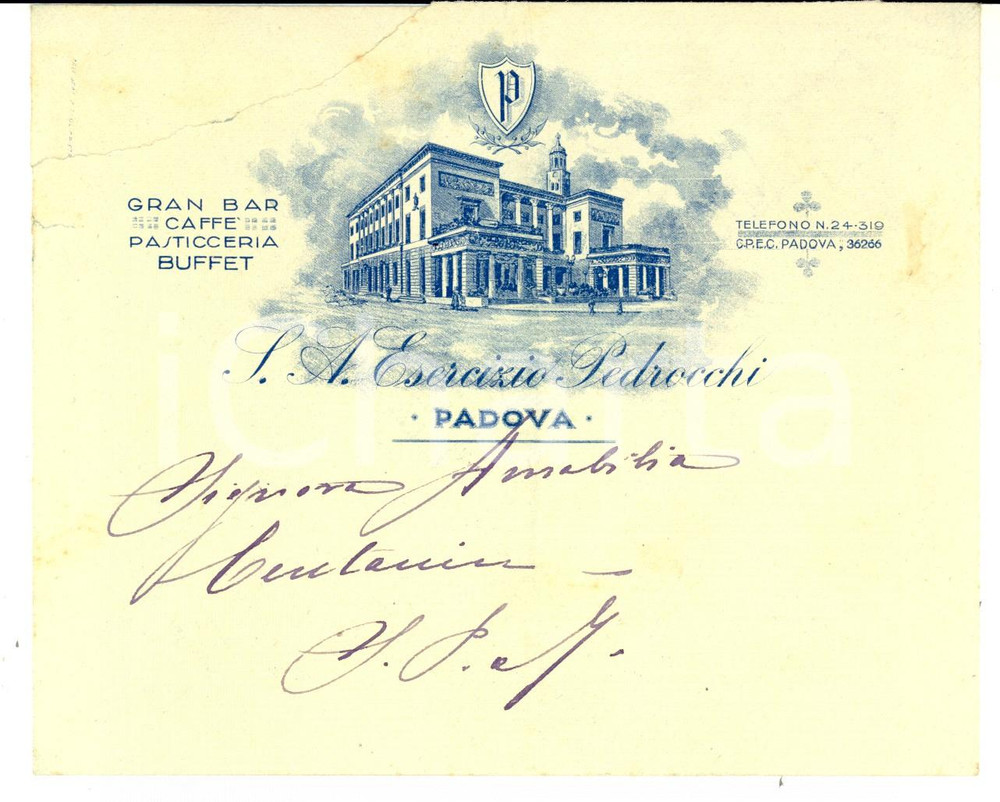 P
GRAN BAR
CAFFÈ
PASTICCERIA
BUFFET
TELEFONO N. 24-319
C.P.E.C. PADOVA, 36266
S. A. Esercizio Pedrocchi
· PADOVA ·
iCharta
Signora Amabilia
Centanin –
S. P. M.